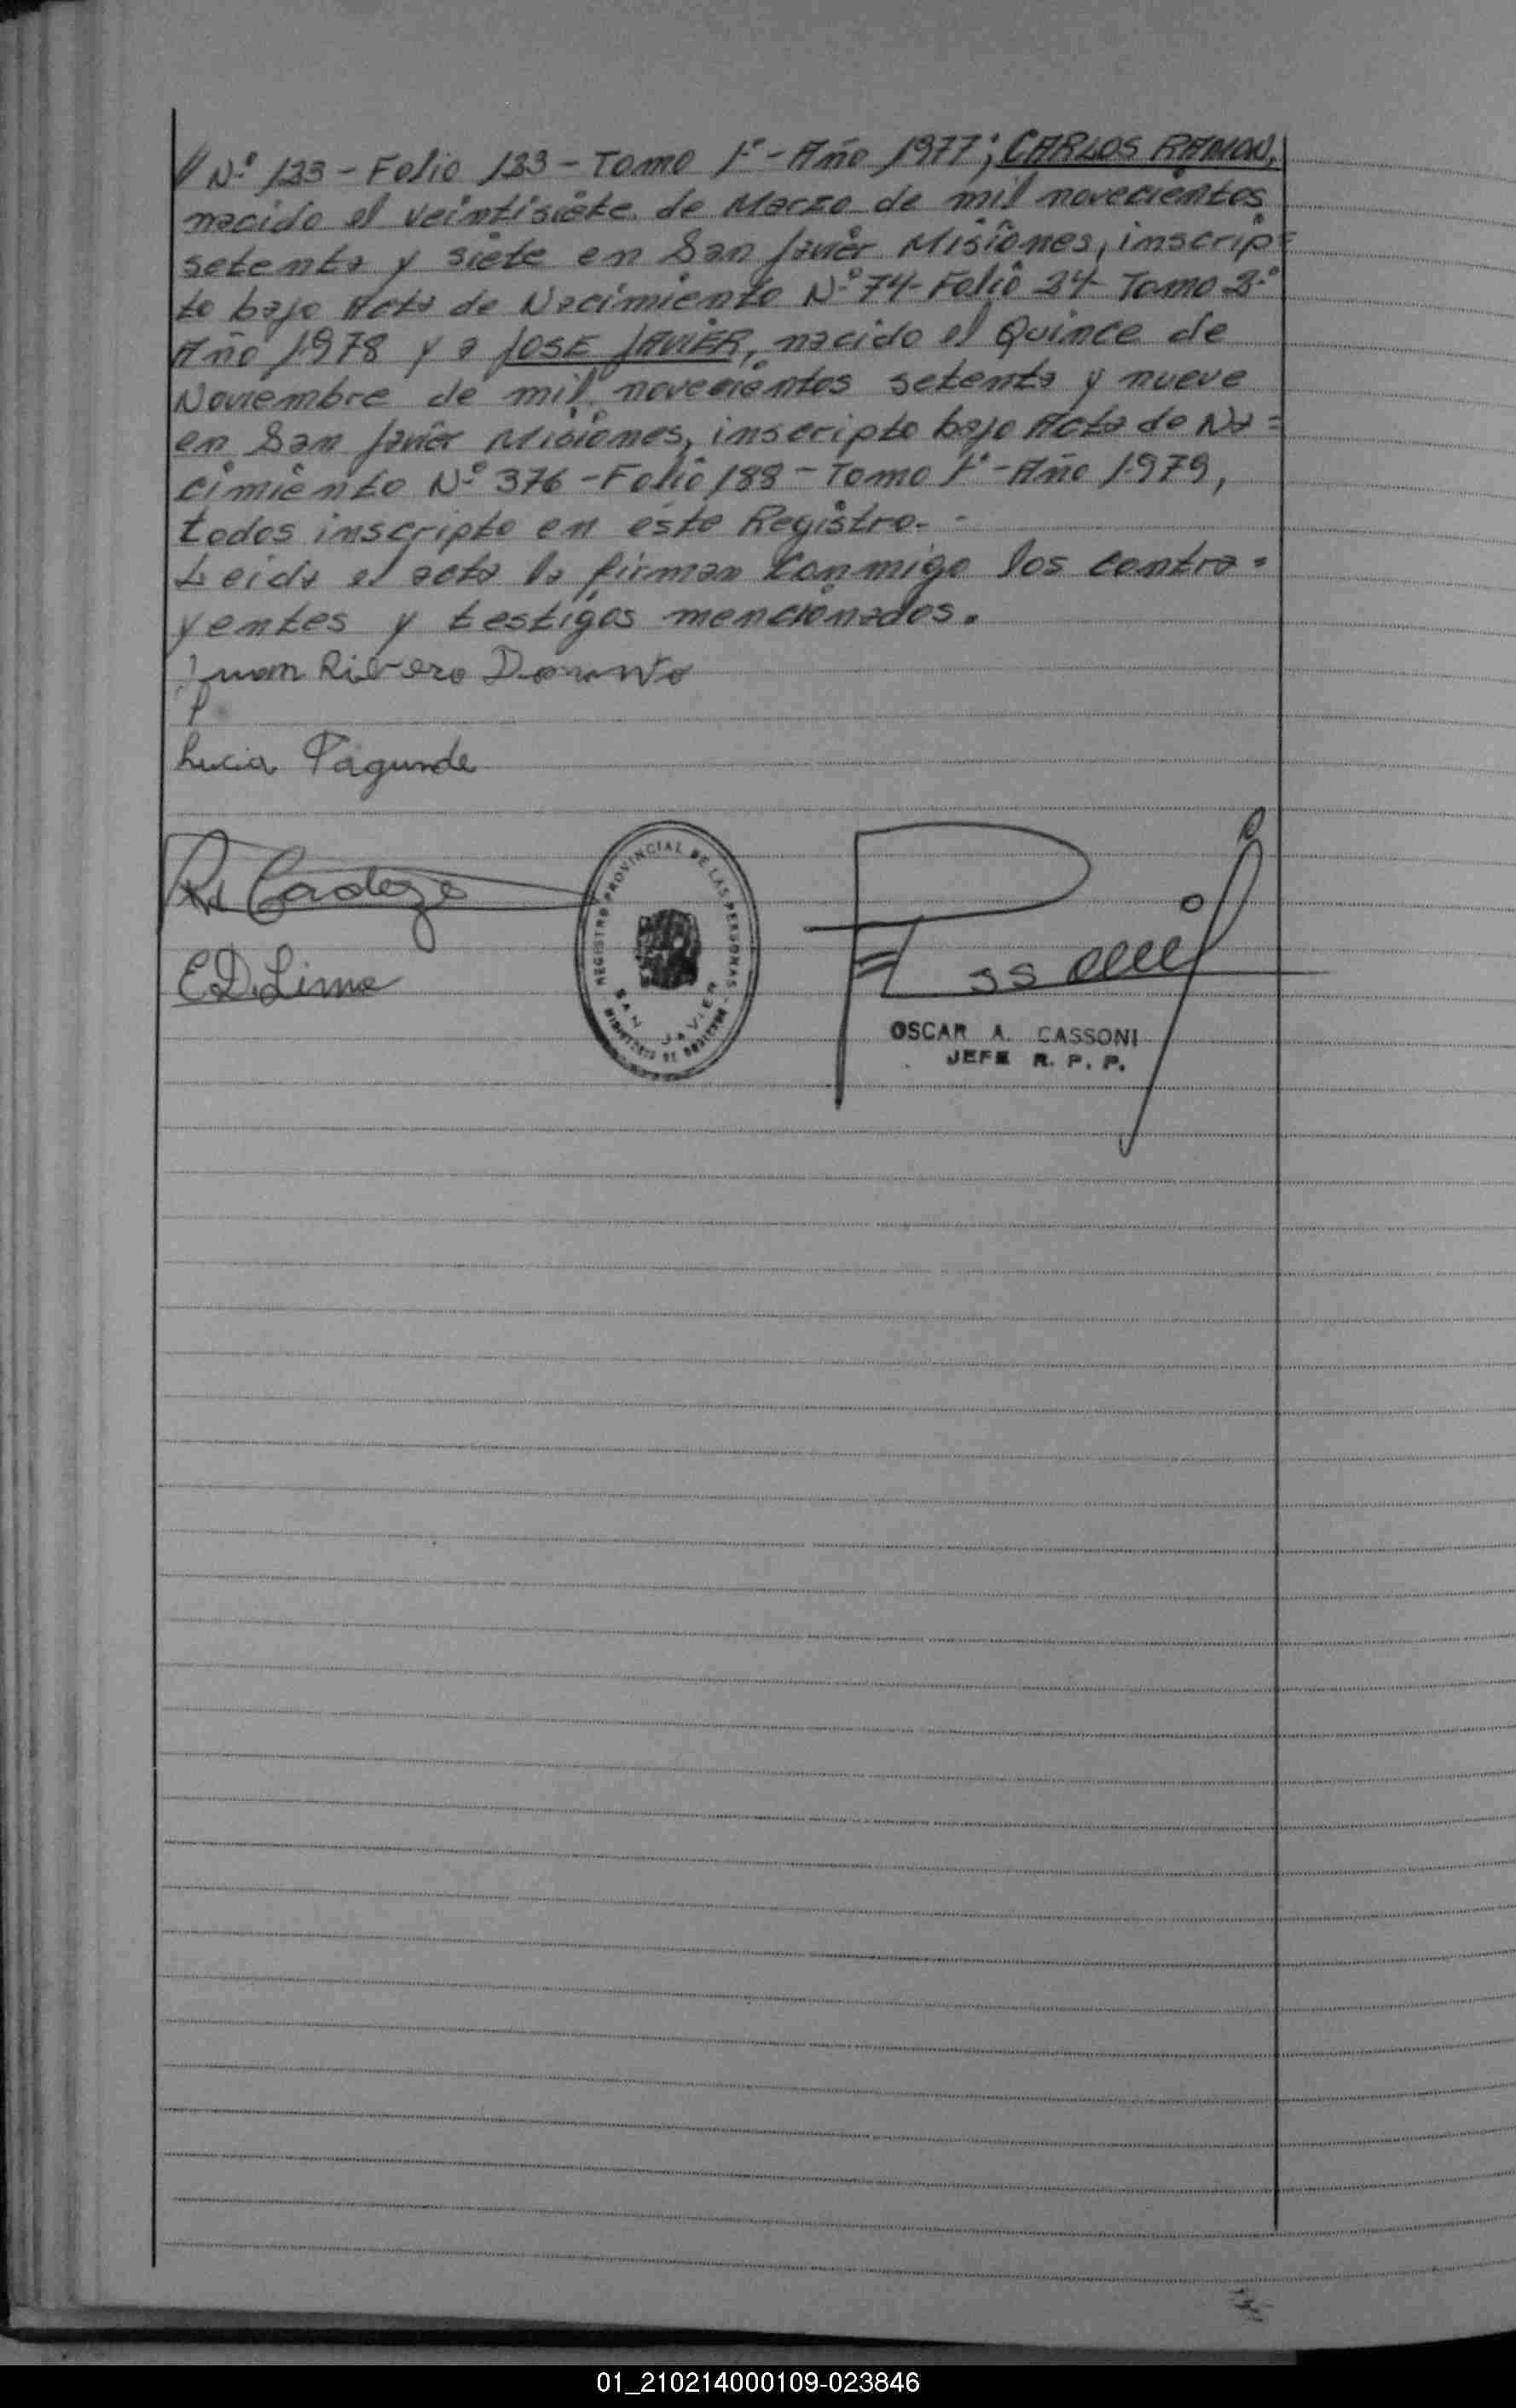 // Nº 133 - Folio 133 - Tomo 1º - Año 1977; CARLOS RAMON,
nacido el veintisiete de Marzo de mil novecientos
setenta y siete en San Javier Misiones, inscrip=
to bajo Acta de Nacimiento Nº 74- Folio 24- Tomo 2º
Año 1978 y a JOSE JAVIER, nacido el Quince de
Noviembre de mil novecientos setenta y nueve
en San Javier Misiones, inscripto bajo Acta de Na=
cimiento Nº 376 - Folio 188 - Tomo 1º - Año 1979,
todos inscripto en éste Registro.-
Leida el acta la firman conmigo los contra=
yentes y testigos mencionados.
Juan Rivero
Lucia Fagunde
Cardozo
E D. Lima
REGISTRO PROVINCIAL DE LAS PERSONAS
SAN JAVIER
MINISTERIO DE GOBIERNO
OSCAR A. CASSONI
JEFE R. P. P.
01_210214000109-023846